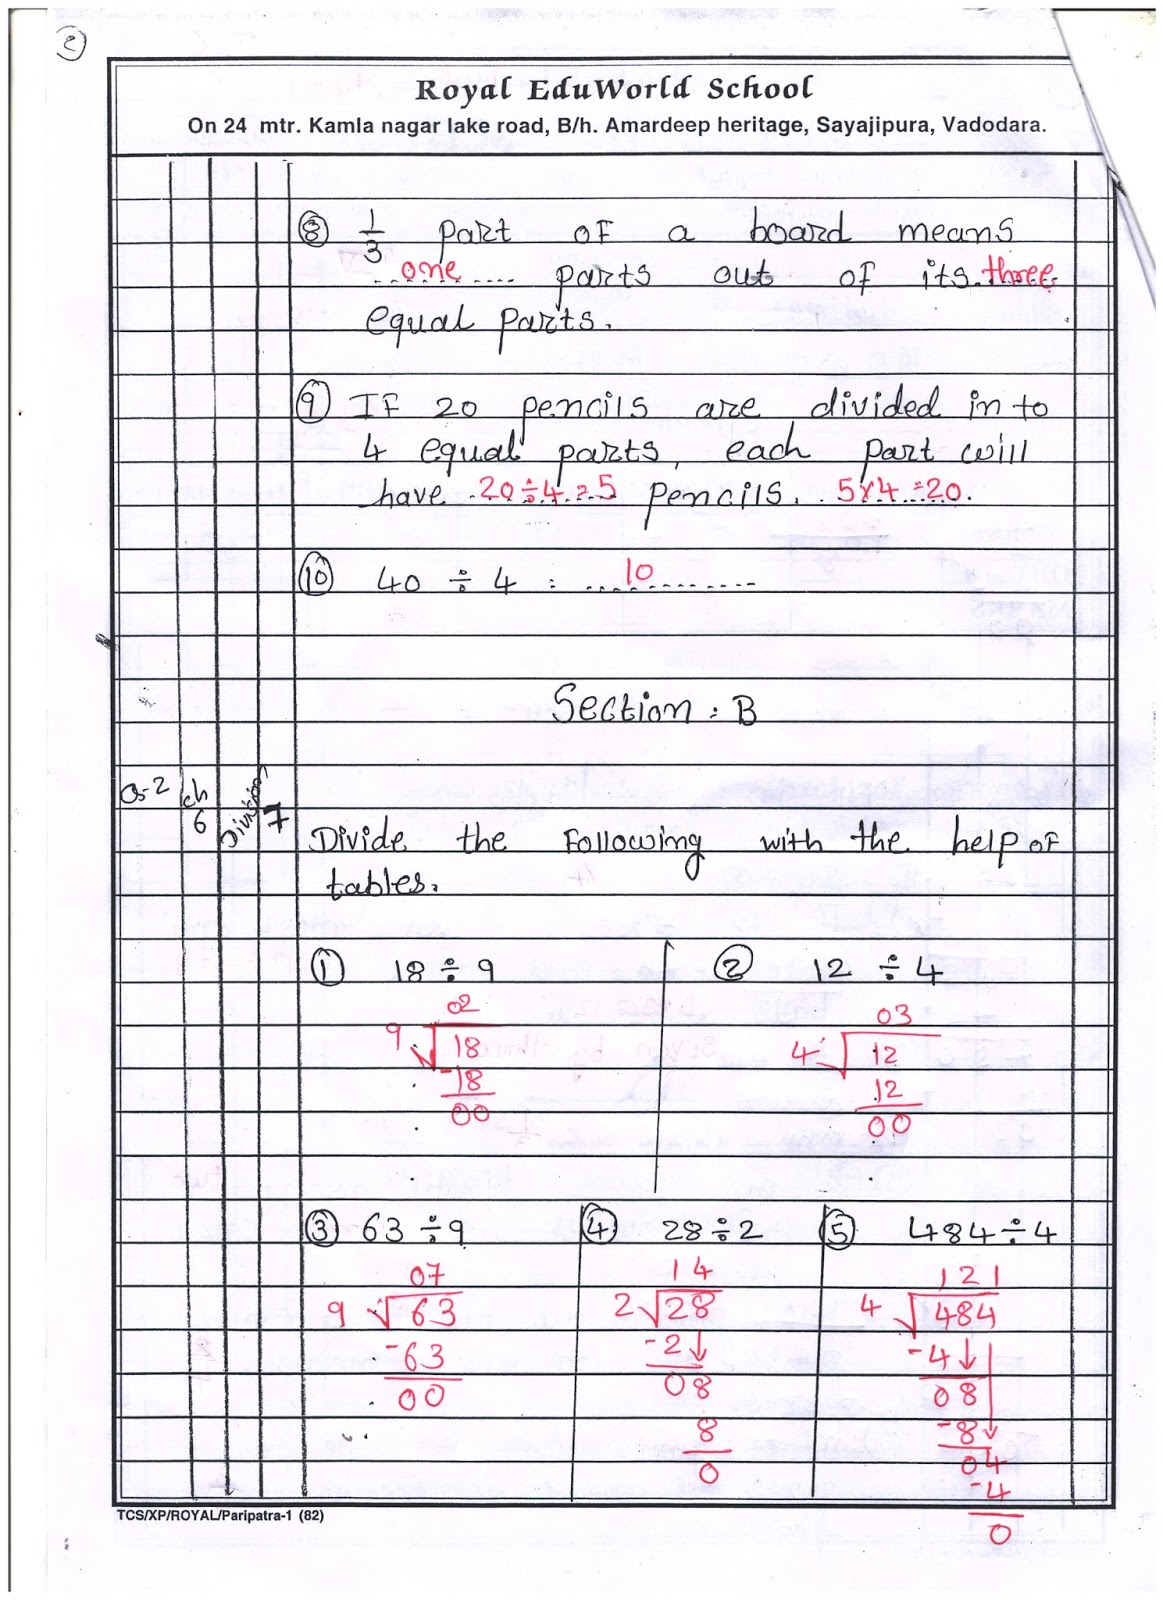 2
Royal EduWorld School
On 24 mtr. Kamla nagar lake road, B/h. Amardeep heritage, Sayajipura, Vadodara.
⑧ 1/3 part of a board means
one parts out of its three
equal parts.
⑨ If 20 pencils are divided in to
4 equal parts, each part will
have 20÷4=5 pencils. 5×4=20.
⑩ 40 ÷ 4 = 10
Section : B
Q-2 ch 6 Division 7
Divide the following with the help of
tables.
① 18 ÷ 9 ② 12 ÷ 4
02 03
9 √18 4 √12
-18 12
00 00
③ 63 ÷ 9 ④ 28 ÷ 2 ⑤ 484 ÷ 4
07 14 121
9 √63 2 √28 4 √484
-63 -2↓ -4↓
00 08 08
8 -8↓
0 04
-4
0
TCS/XP/ROYAL/Paripatra-1 (82)